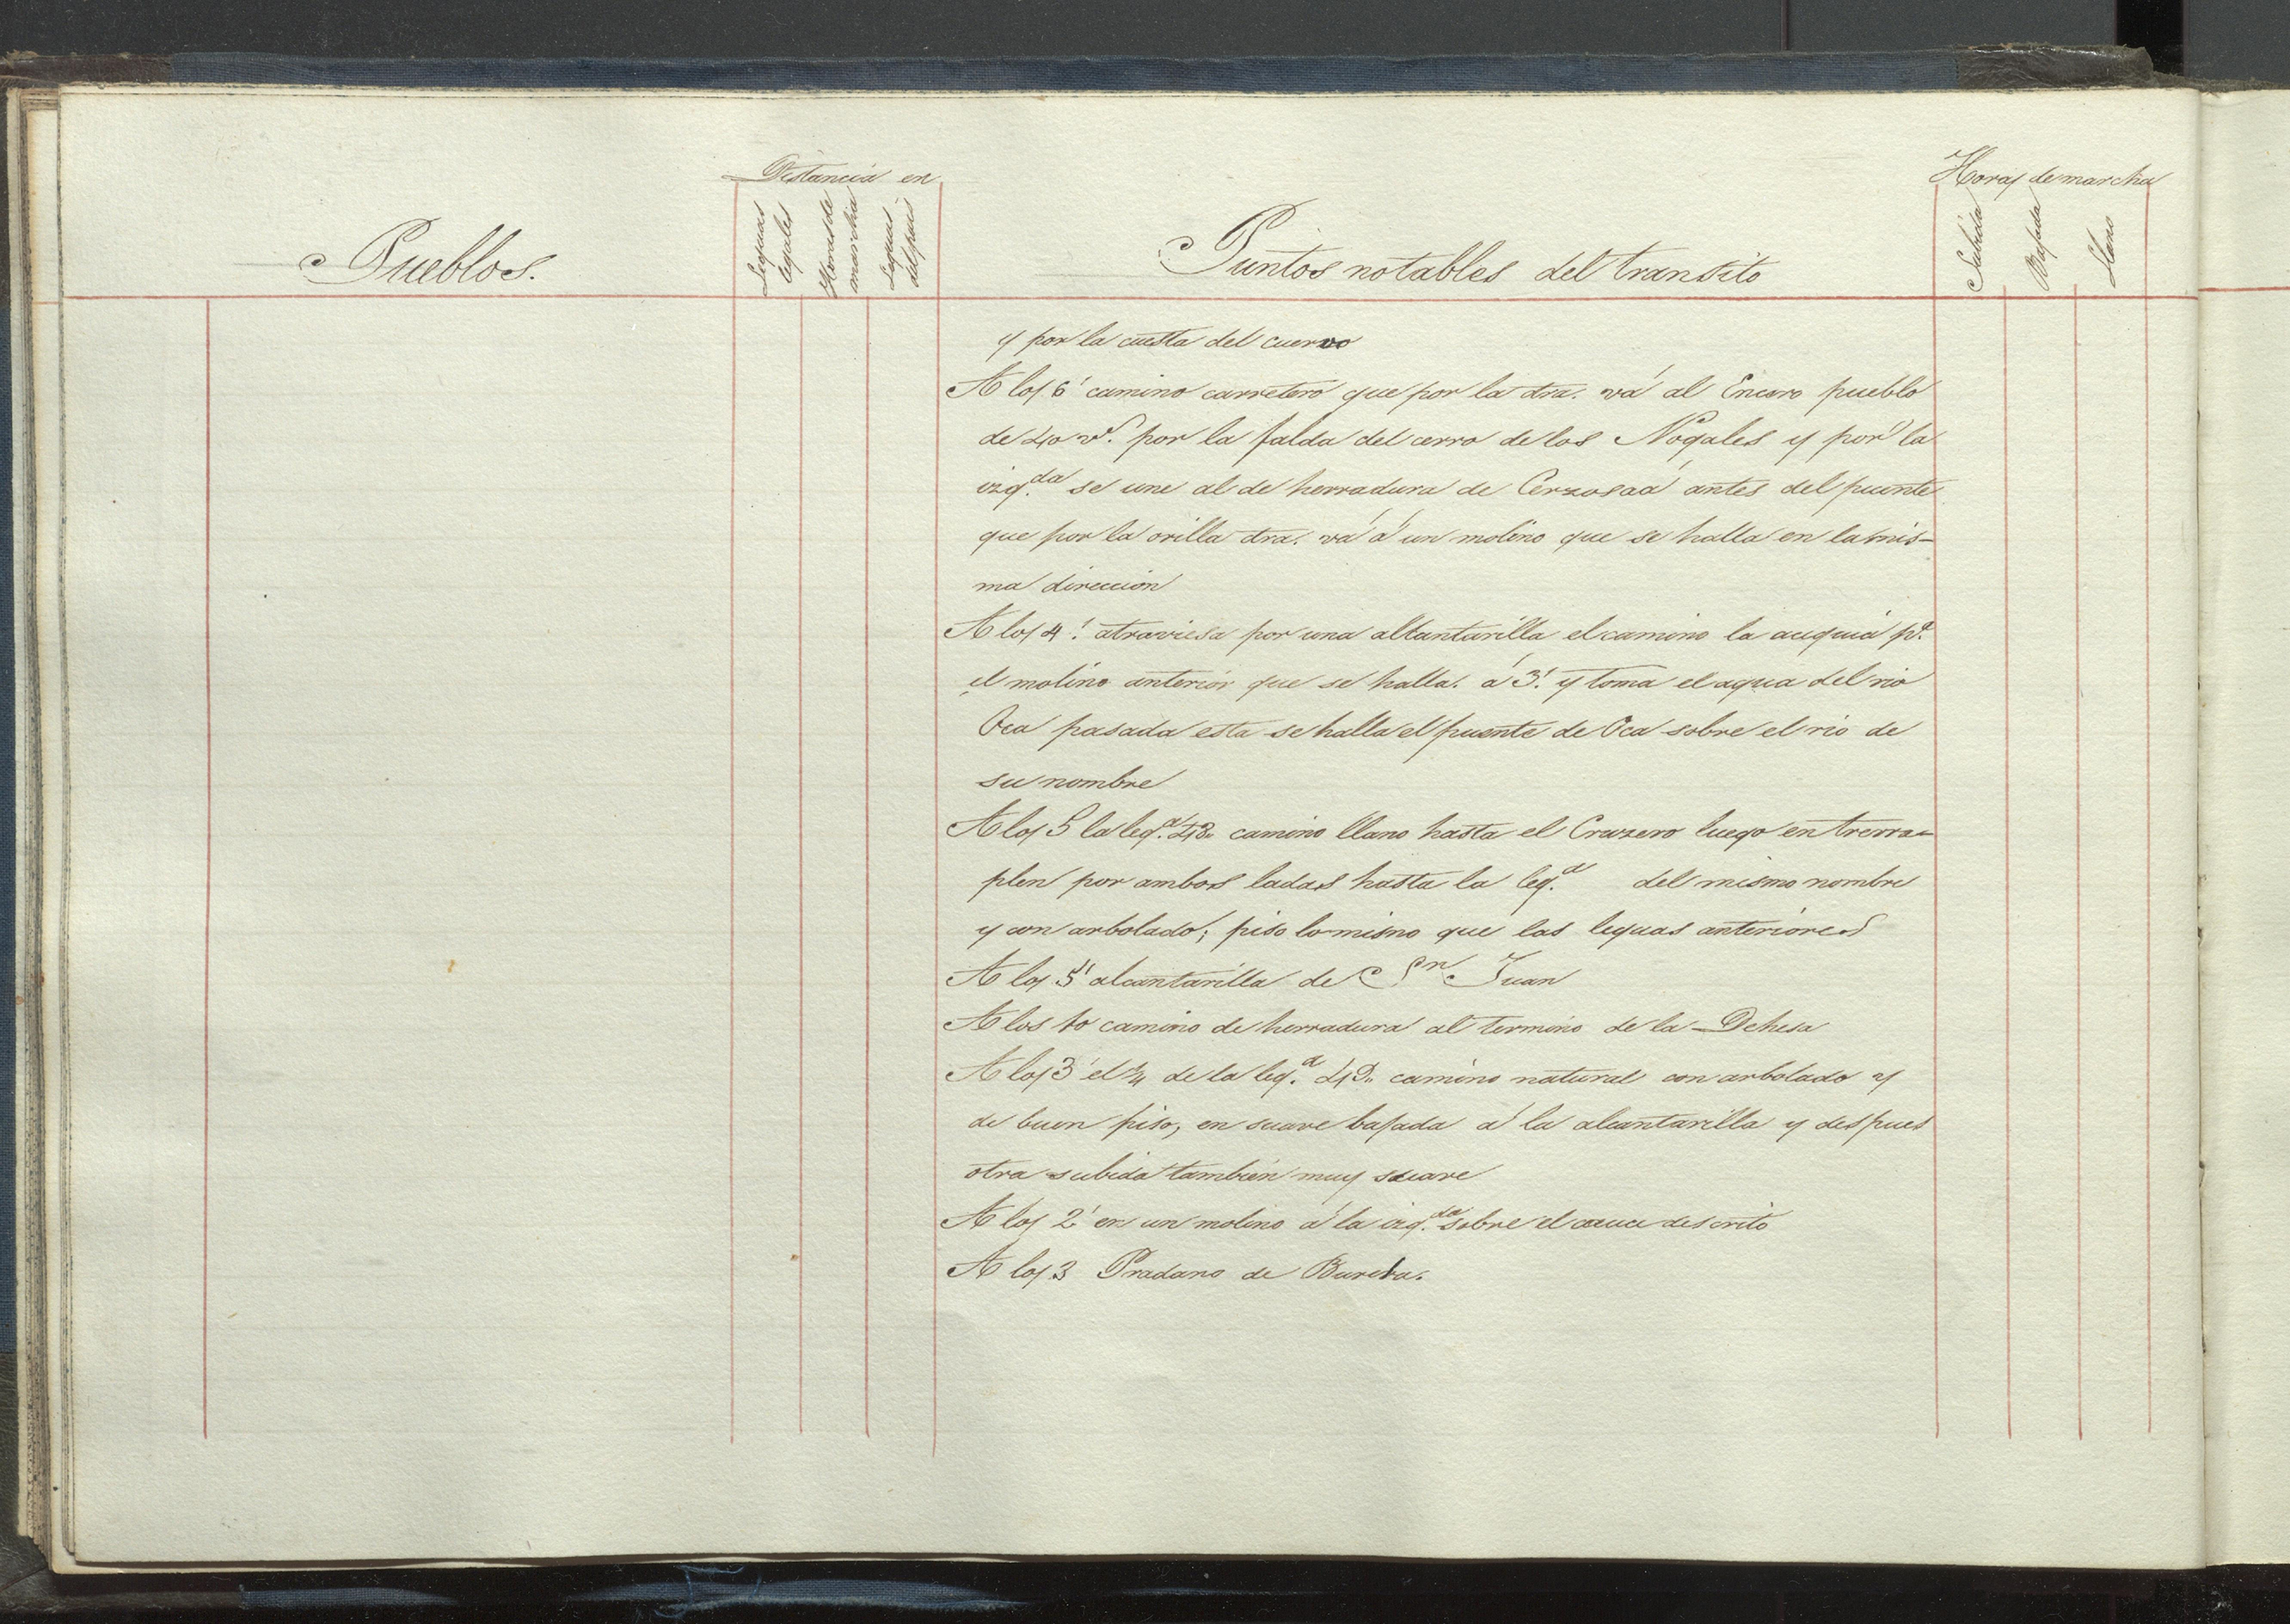 Distancia en
Horas de marcha
Pueblos.
Leguas legales
Horas de marcha
Leguas del pais
Puntos notables del transito
Subida
Bajada
Llano
y por la cuesta del cuervo
A los 6' camino carretero que por la dra. vá al Encuro pueblo
de 40 v.s por la falda del cerro de los Nogales y por la
izq.da se une al de herradura de Cerzosaá antes del puente
que por la orilla dra. vá á un molino que se halla en la mis-
ma direccion
A los 4'. atraviesa por una altantarilla el camino la acequia p.a
el molino anterior que se halla. á 3'. y toma el agua del rio
Oca pasada esta se halla el puente de Oca sobre el rio de
su nombre
A los 5 la leg.a 48. camino llano hasta el Cruzero luego en trerra-
plen por ambos lados hasta la leg.a del mismo nombre
y con arbolado; piso lo mismo que las leguas anteriores
A los 5' alcantarilla de Sn Juan
A los 10 camino de herradura al termino de la Dehesa
A los 3' el 1/4 de la leg.a 49. camino natural con arbolado y
de buen piso, en suave bajada á la alcantarilla y despues
otra subida tambien muy suave
A los 2' en un molino á la izq.da sobre el cauce descrito
A los 3 Pradano de Bureba.